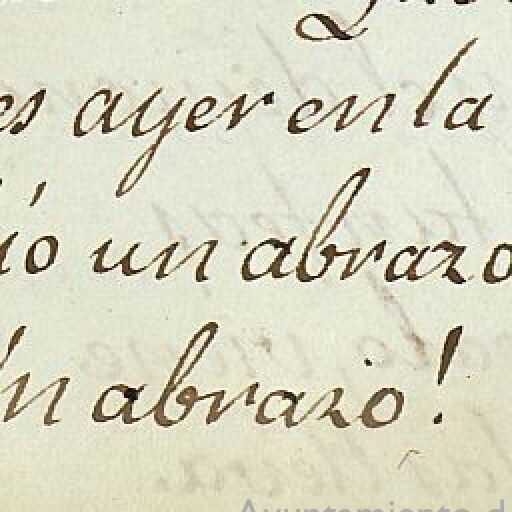 es ayer en la
ió un abrazo
Un abrazo!
Ayuntamiento d